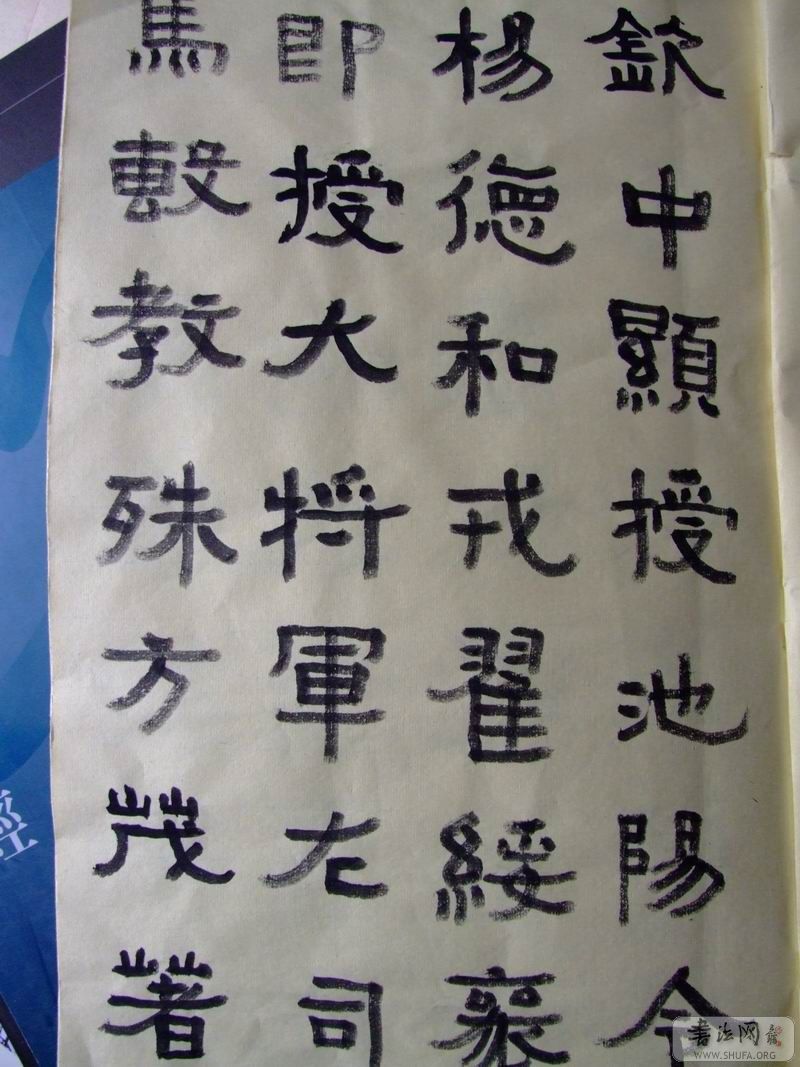 欽中顯授池陽令
楊徳和戎翟綏
即授大将軍左司
馬教殊方茂著
書法网
WWW.SHUFA.ORG